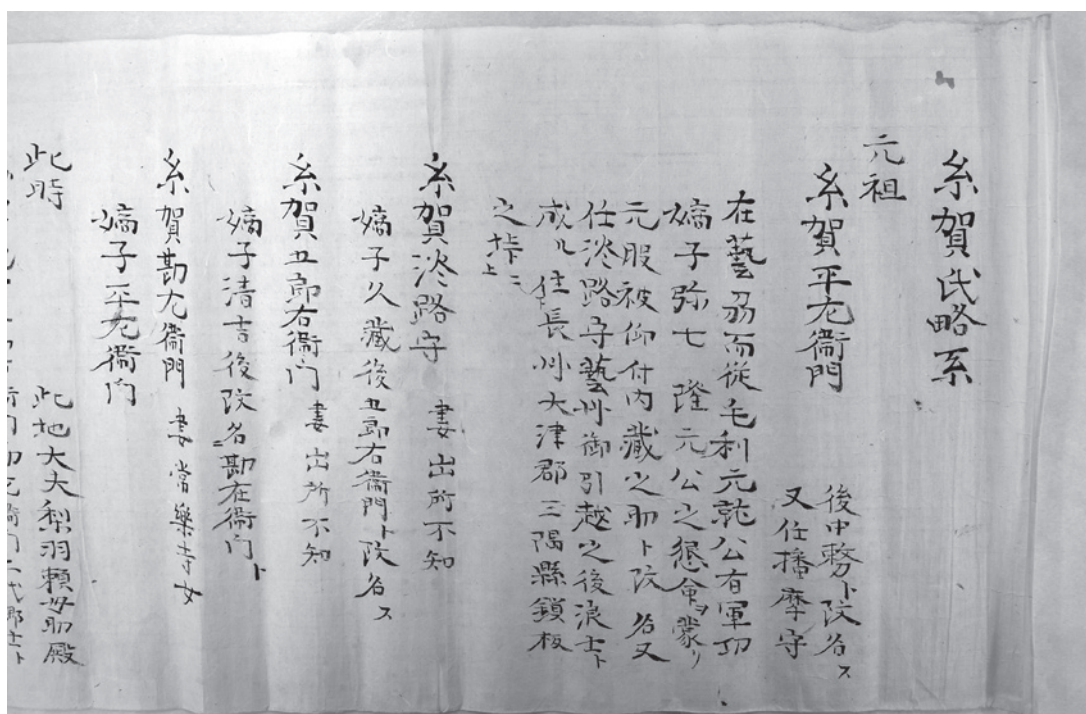 糸賀氏略系
元祖
糸賀平左衞門
後中務ト改名ス
又任播摩守
在藝刕而従毛利元就公有軍功
嫡子弥七 隆元公之懇命ヲ蒙リ
元服被仰付内藏之助ト改名又
任淡路守藝州御引越之後浪士ト
成ル住長州大津郡三隅縣鎖板
之
糸賀淡路守 妻出所不知
嫡子久藏後五郎右衞門ト改名ス
糸賀五郎右衞门 妻出所不知
嫡子清吉後改名勘左衞门ト
糸賀勘左衞門 妻常樂寺女
嫡子平左衞門
此時
此地大夫梨羽頼母助殿